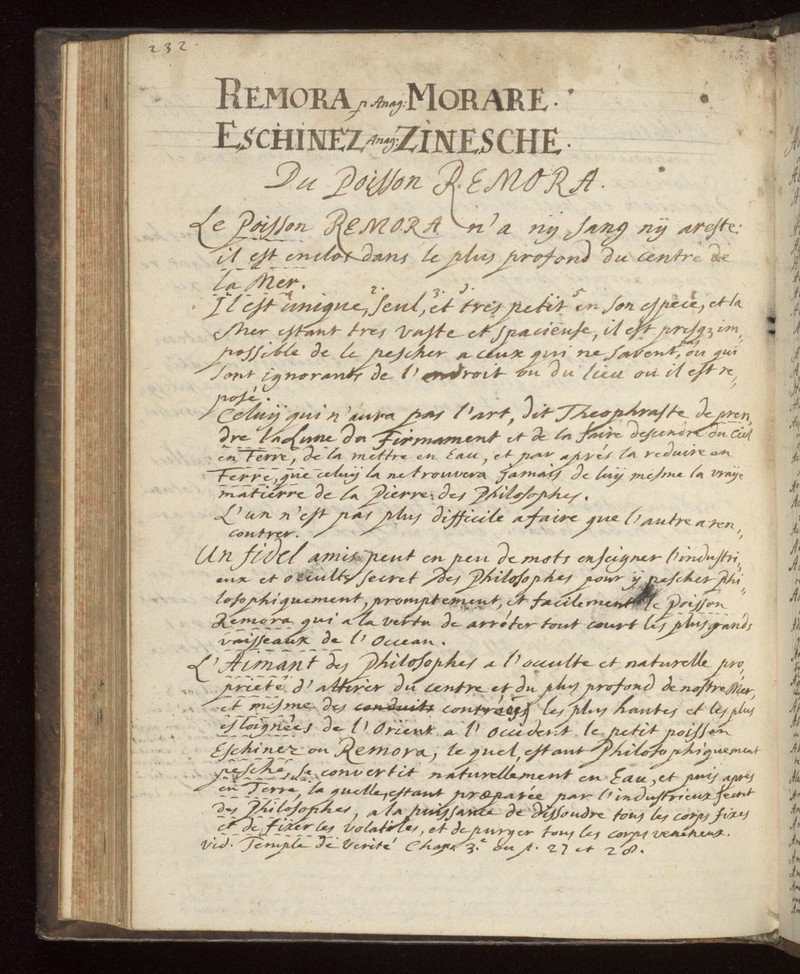 232.
REMORA p Anag: MORARE.
ESCHINEZ Anag: ZINESCHE.
Du Poisson REMORA.
Le Poisson REMORA n'a nÿ sang nÿ areste:
il est enclos dans le plus profond du centre de
la Mer.
Il est unique, seul, et tres petit en son espece, et la
Mer estant tres vaste et spacieuse, il est presq3 im„
possible de le pescher a ceux qui ne savent, ou qui
sont ignorants de l'endroit ou du lieu ou il est re„
posé.
Celuÿ qui n'aura pas l'art, dit Theophraste de pren„
dre la Lune du Firmament et de la faire descendre du Ciel
en Terre, de la mettre en Eau, et par après la reduire en
Terre, que celuÿ la ne trouvera jamais de luÿ mesme la vraÿe
matierre de la Pierre des Philosophes.
L'un n'est pas plus difficile a faire que l'autre a ren„
contrer.
Un fidel amis peut en peu de mots enseigner l'industri„
eux et occulte secret des Philosophes pour ÿ pescher Phi„
losophiquement, promptement, et facilement le Poisson
Remora qui a la vertu de arrêter tout court les plus grands
vaisseaux de l'Occean.
L'Aimant des Philosophes a l'occulte et naturelle pro„
prieté d'attirer du centre et du plus profond de nostre Mer,
et mesme des conduits les plus hautes et les plus
esloignées de l'Orient a l'occident le petit poisson
Eschinez ou Remora, le quel estant Philosophiquement
pesché, se convertit naturellement en Eau, et puis après
en Terre, la quelle, estant præparée par l'industrieux secret
des Philosophes, a la puissance de dissoudre tous les corps fixes
et de fixer les volatiles, et de purger tous les corps veneneux.
vid. Temple de Verité Chap. 3.e p. 27 et 28.